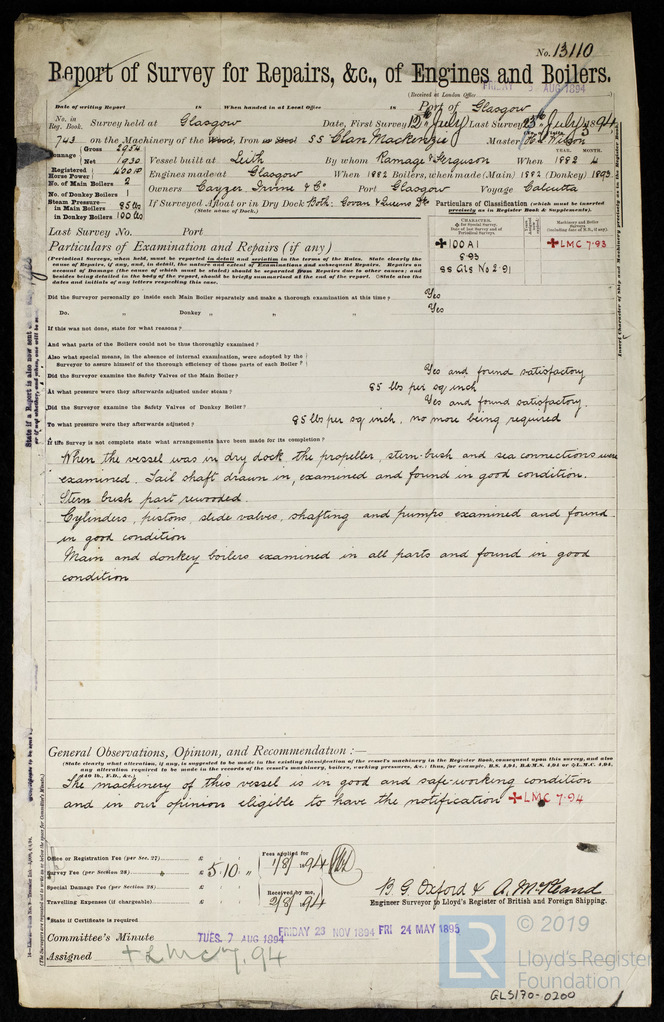 No. 13110
Report of Survey for Repairs, &c., of Engines and Boilers.
(Received at London Office FRIDAY 3 AUG 1894)
Date of writing Report 18 When handed in at Local Office 18 Port of Glasgow
No. in Reg. Book. Survey held at Glasgow Date, First Survey 12th July Last Survey 23rd July 1894
743 on the Machinery of the Wood, Iron or Steel SS Clan Mackenzie Master Wilson
Tonnage Gross 2954 Net 1930
Vessel built at Leith By whom Ramage & Ferguson When 1882 4
YEAR. MONTH.
Registered Horse Power 400 HP
Engines made at Glasgow When 1882 Boilers, when made (Main) 1882 (Donkey) 1893
No. of Main Boilers 2
Owners Cayzer Irvine & Co Port Glasgow Voyage Calcutta
No. of Donkey Boilers 1
Steam Pressure in Main Boilers 85 lbs
in Donkey Boilers 100 lbs
If Surveyed Afloat or in Dry Dock Both: Govan & Queens Dk
(State name of Dock.)
Particulars of Classification (which must be inserted precisely as in Register Book & Supplements).
Last Survey No. Port
CHARACTER.
Machinery and Boiler Surveys
✠100A1 ✠LMC 7·93
8·93
SS Gls No 2·91
Particulars of Examination and Repairs (if any)
(Periodical Surveys, when held, must be reported in detail and seriatim in the terms of the Rules. State clearly the
cause of Repairs, if any, and, in detail, the nature and extent of Examinations and subsequent Repairs. Repairs on
account of Damage (the cause of which must be stated) should be separated from Repairs due to other causes; and
besides being detailed in the body of the report, should be briefly summarised at the end of the report. State also the
dates and initials of any letters respecting this case.
Did the Surveyor personally go inside each Main Boiler separately and make a thorough examination at this time? Yes
Do. „ Donkey „ „ „ Yes
If this was not done, state for what reasons?
And what parts of the Boilers could not be thus thoroughly examined?
Also what special means, in the absence of internal examination, were adopted by the
Surveyor to assure himself of the thorough efficiency of those parts of each Boiler?
Did the Surveyor examine the Safety Valves of the Main Boiler? Yes and found satisfactory
At what pressure were they afterwards adjusted under steam? 85 lbs per sq inch
Did the Surveyor examine the Safety Valves of Donkey Boiler? Yes and found satisfactory.
To what pressure were they afterwards adjusted? 85 lbs per sq inch, no more being required
If the Survey is not complete state what arrangements have been made for its completion?
When the vessel was in dry dock the propeller, stern-bush and sea connections were
examined. Tail shaft drawn in, examined and found in good condition.
Stern bush part rewooded.
Cylinders, pistons, slide valves, shafting and pumps examined and found
in good condition
Main and donkey boilers examined in all parts and found in good
condition
General Observations, Opinion, and Recommendation:—
(State clearly what alteration, if any, is suggested to be made in the existing classification of the vessel's machinery in the Register Book, consequent upon this survey, and also
any alteration required to be made in the records of the vessel's machinery, boilers, working pressures, &c.; thus, for example, B.S. 4,94, B.&M.S. 4,94 or L.M.C. 4,94,
140 lb., F.D., &c.)
The machinery of this vessel is in good and safe-working condition
and in our opinion eligible to have the notification ✠LMC 7·94
Office or Registration Fee (per Sec. 27) £
Survey Fee (per Section 28) £ 5·10 „
Special Damage Fee (per Section 28) £
Travelling Expenses (if chargeable) £
Fees applied for 1/8/1894
Received by me, 2/8/1894
B. G. Oxford &
Engineer Surveyor to Lloyd's Register of British and Foreign Shipping.
*State if Certificate is required
Committee's Minute TUES. 7 AUG 1894 FRIDAY 23 NOV 1894 FRI 24 MAY 1895
Assigned + LMC 7.94
State if a Report is also now sent
LR
© 2019
Lloyd's Register
Foundation
GLS170-0200